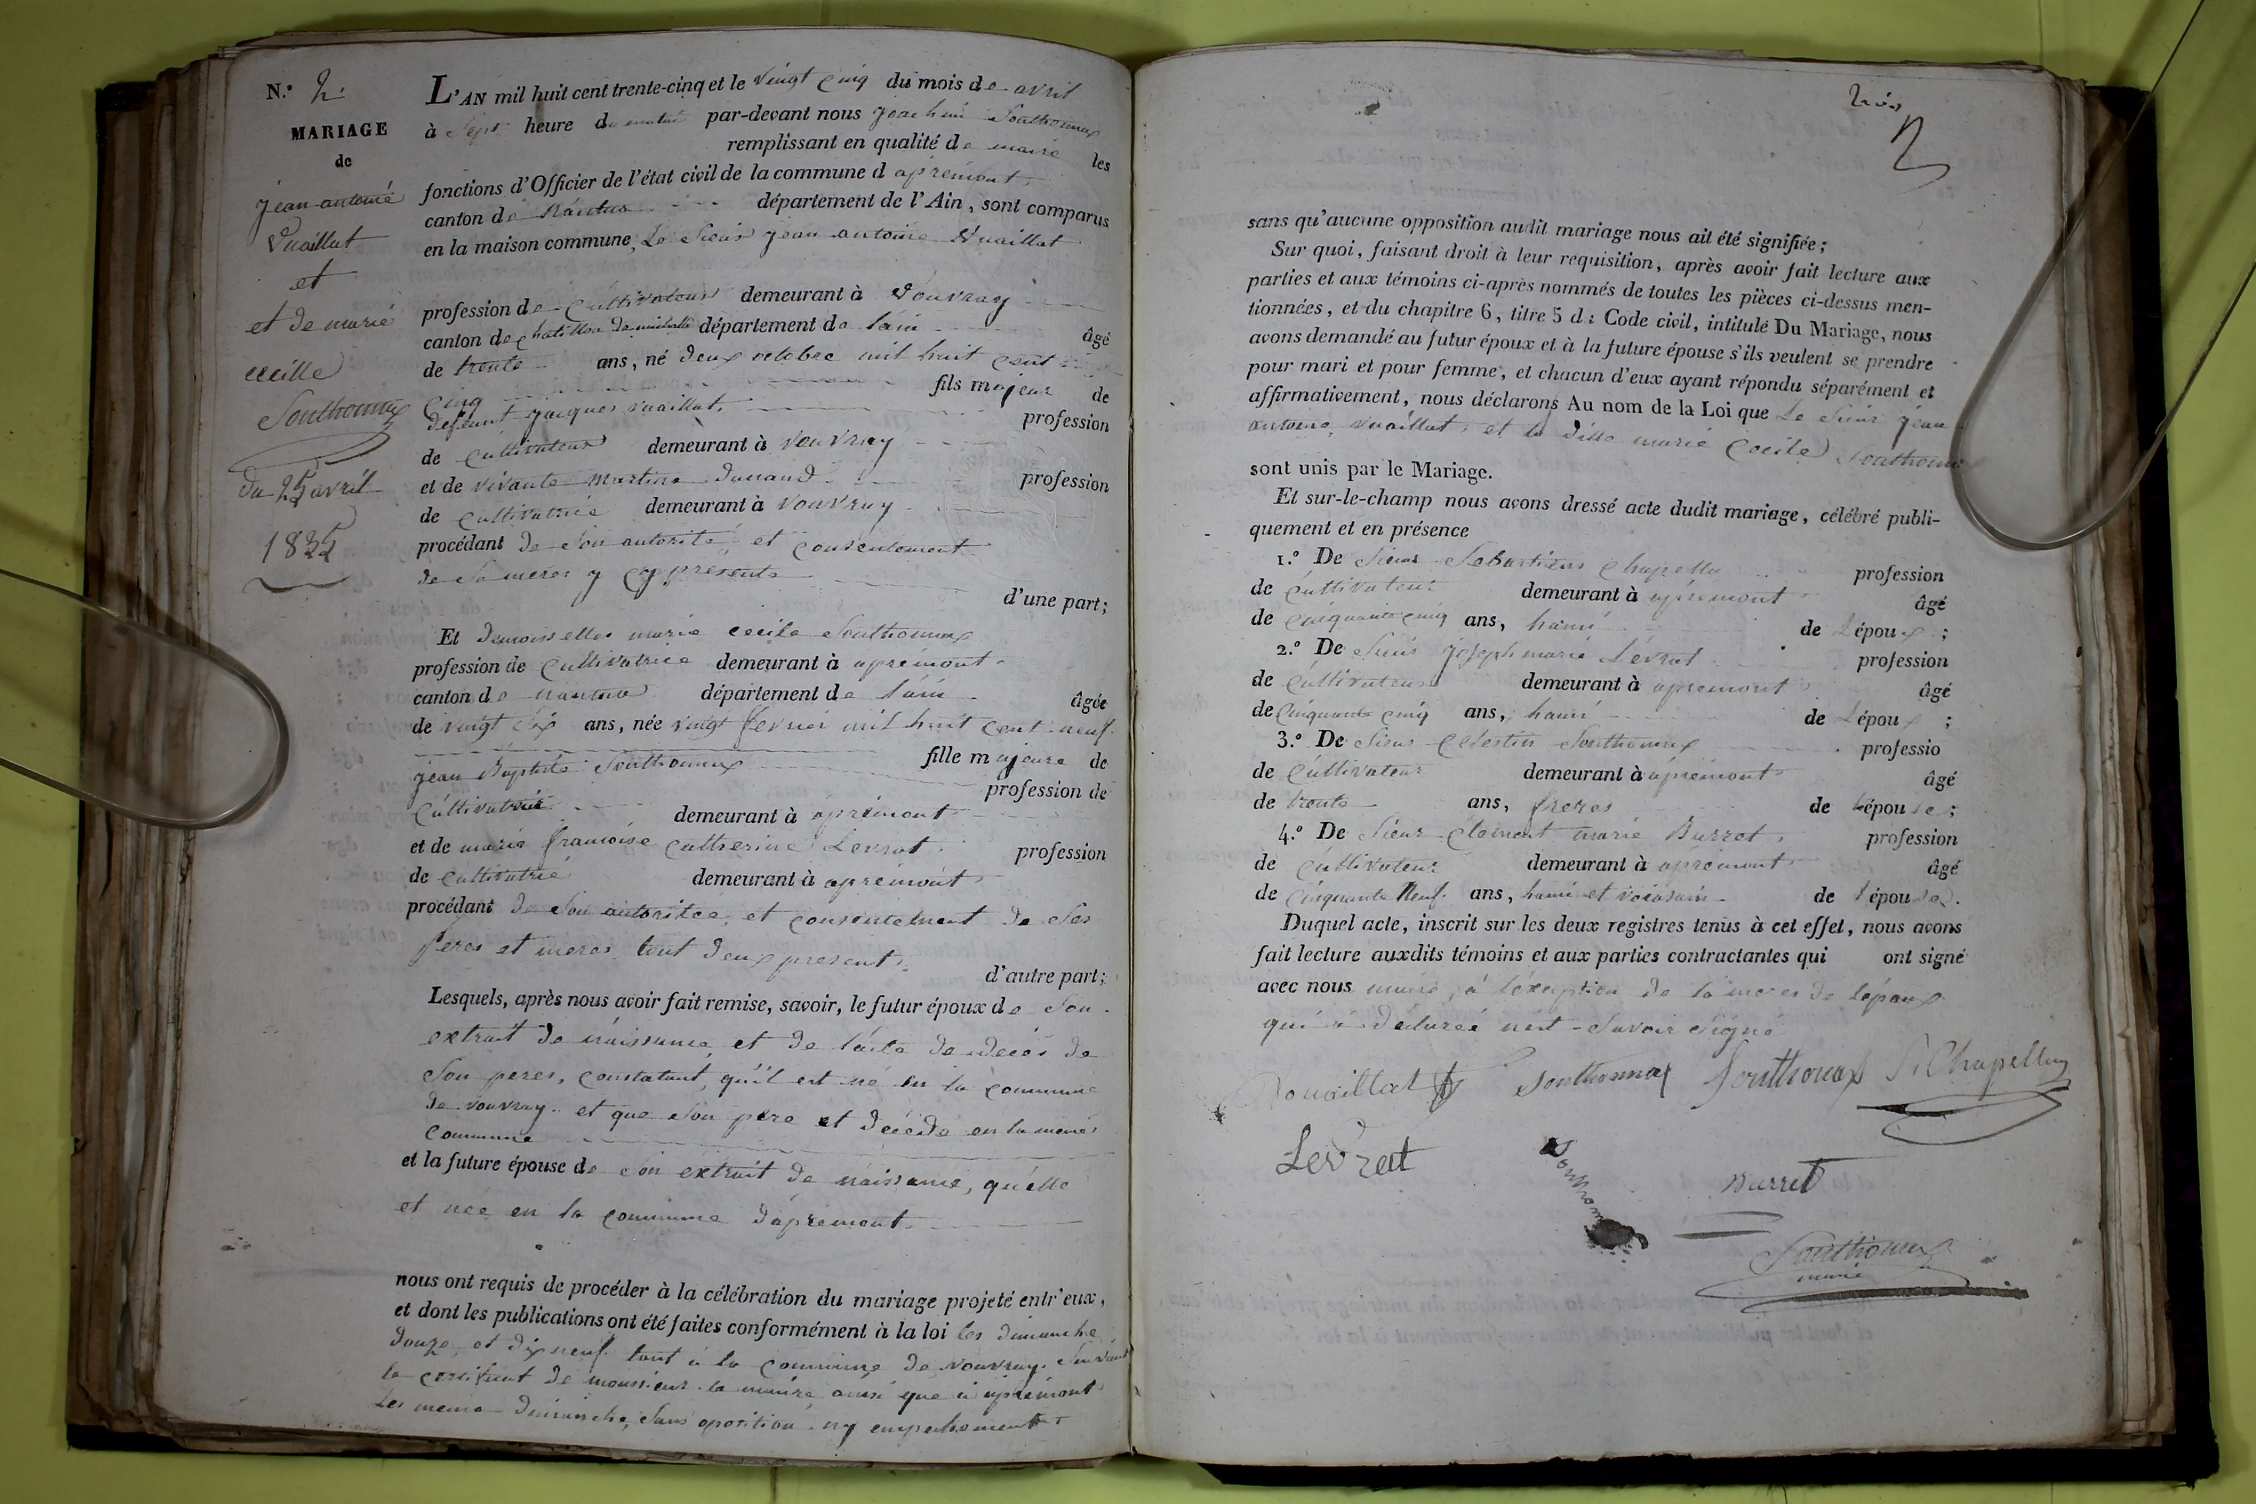 N.º 2.
MARIAGE
de
jean antoine
Vuaillat
et
et de marie
cecille
Southonnax
du 25 avril
1835
L'AN mil huit cent trente-cinq et le vingt cinq du mois de avril
à sept heure du matin par-devant nous joachim Southonnax
remplissant en qualité de maire les
fonctions d'Officier de l'état civil de la commune d apremont
canton de Nantua département de l'Ain, sont comparus
en la maison commune, Le Sieur jean antoine Vuaillat
profession de Cultivateur demeurant à Vouvray
canton de chatillon de michaille département de lain âgé
de trente ans, né deux octobre mil huit cent
cinq fils majeur de
defeunt jacques vuaillat, profession
de cultivateur demeurant à vouvray
et de vivante martine Dunand profession
de cultivatrice demeurant à vouvray
procédant de son autorité, et consentement
de sa meres y cy presente
d'une part;
Et demoisselles marie cecile Southonnax
profession de cultivatrice demeurant à apremont
canton de nantua département de lain âgée
de vingt six ans, née vingt fevrier mil huit cent neuf
fille majeure de
jean Baptiste Southonnax profession de
cultivatrie demeurant à apremont
et de marie francoise catherine Levrat profession
de cultivatrie demeurant à apremont
procédant de son autoritee, et consentement de ses
peres et meres tout deux present
d'autre part;
Lesquels, après nous avoir fait remise, savoir, le futur époux de son
extrait de naissance, et de lacte de deces de
son peres, constatant, qu'il est né en la commune
de vouvray et que son père et décédé en la meme
commune
et la future épouse de son extrait de naissance, quelle
et née en la commune dapremont
nous ont requis de procéder à la célébration du mariage projeté entr'eux,
et dont les publications ont été faites conformément à la loi les dimanche
douze, et dix neuf tant à la commune de vouvray, suivant
le certificat de monssieur le maire ainsi que à apremont
Les meme dimanche, sans oposition ny empechement
trois
2
sans qu'aucune opposition audit mariage nous ait été signifiée;
Sur quoi, faisant droit à leur requisition, après avoir fait lecture aux
parties et aux témoins ci-après nommés de toutes les pièces ci-dessus men-
tionnées, et du chapitre 6, titre 5 du Code civil, intitulé Du Mariage, nous
avons demandé au futur époux et à la future épouse s'ils veulent se prendre
pour mari et pour femme, et chacun d'eux ayant répondu séparément et
affirmativement, nous déclarons Au nom de la Loi que Le Sieur jean
antoine vuaillat, et la dille marie Cecile Southonnax
sont unis par le Mariage.
Et sur-le-champ nous avons dressé acte dudit mariage, célébré publi-
quement et en présence
1.º De Sieur Sebastiens Chapelluy profession
de Cultivateur demeurant à apremont âgé
de cinquante cinq ans, hami de Lépoux;
2.º De Sieur joseph marie Levrat profession
de cultivateur demeurant à apremont âgé
de cinquante cinq ans, hami de Lépoux;
3.º De Sieur Celestin Southonnax professio
de cultivateur demeurant à apremont âgé
de trente ans, freres de Lépouse;
4.º De Sieur Clement marie Burret, profession
de cultivateur demeurant à apremont âgé
de cinquante Neuf ans, hami et voissain de lépouse.
Duquel acte, inscrit sur les deux registres tenus à cet effet, nous avons
fait lecture auxdits témoins et aux parties contractantes qui ont signé
avec nous maire, à lexeption de la meres de lépoux
qui a declareé nest savoir signé
Vouaillat Southonnax Southonax S. Chapelluy
Levrat
Burret
Southonnax
maire